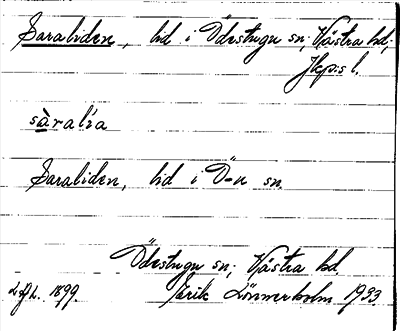 Saraliden, lid i Ödestugu sn; Västra hd;
Jkps l.
sàralia
Saraliden, lid i Ö-u sn.
Ödestugu sn; Västra hd.
1899. Erik Lönnerholm 1933.